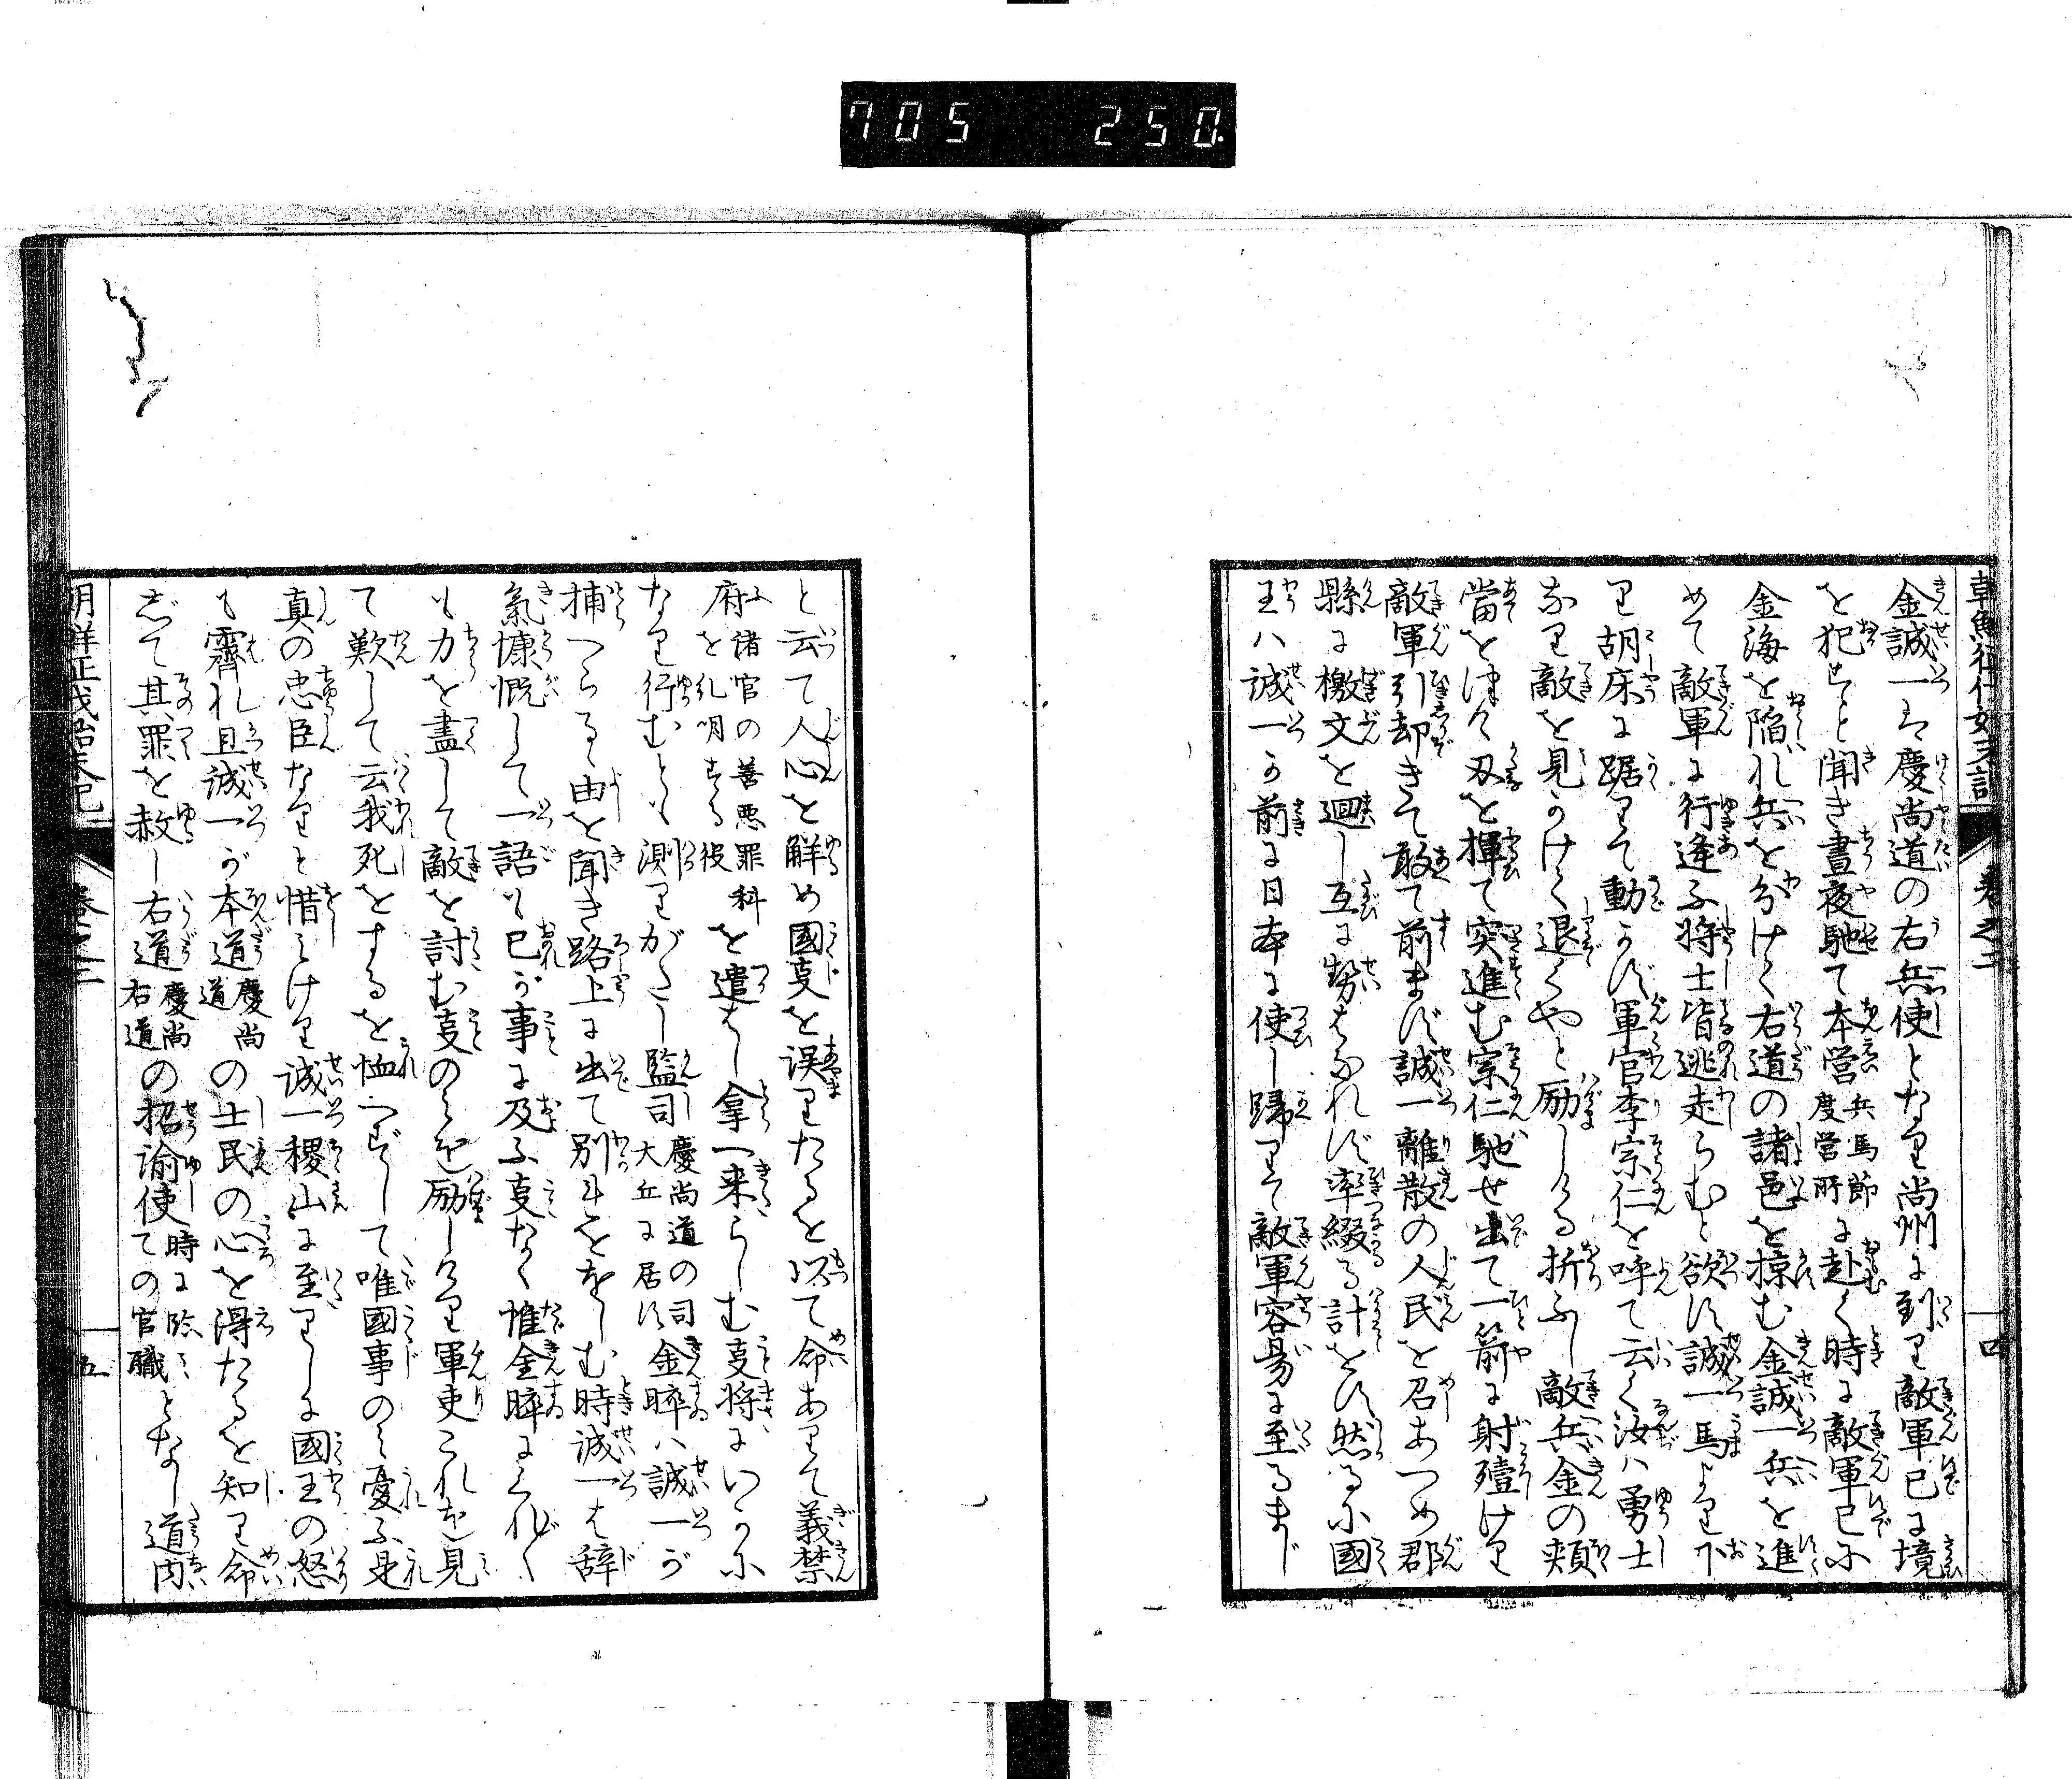 705 250.
朝鮮征伐始末記 巻之二 四
金誠一ハ慶尚道の右兵使となり尚州に到り敵軍已に境
を犯すと聞き晝夜馳て本営兵馬節度営所に赴く時に敵軍已に
金海を陥れ兵を分けて右道の諸邑を掠む金誠一兵を進
めて敵軍に行逢ふ将士皆逃走らむと欲す誠一馬より下
り胡床に踞りて動かず軍官李宗仁を呼て云く汝ハ勇士
なり敵を見かけて退くやと励しける折ふし敵兵金の頬
當を注け刃を揮て突進む宗仁馳せ出て一箭に射殪けり
敵軍引却きて敢て前まず誠一離散の人民を召あつめ郡
縣に檄文を廻し互に勢はなれず率綴る計をす然るに國
王ハ誠一が前に日本に使し歸りて敵軍容易に至るまじ
と云て人心を解め國事を誤りたるを以て命ありて義禁
府諸官の善悪罪科を糺明する役を遣はし拿へ来らしむ事将にいかに
なり行むとも測りがたし監司慶尚道の司大丘に居す金睟ハ誠一が
捕へらるゝ由を聞き路上に出て別れををしむ時誠一は辞
氣慷慨して一語も己が事に及ふ事なく惟金睟によくれ〴〵
も力を盡して敵を討む事のミを励しけり軍吏これを見
て歎して云我死をするを恤へずして唯國事のミ憂ふ是
真の忠臣なりと惜ミけり誠一稷山に至りしに國王の怒
も霽れ且誠一が本道慶尚道の士民の心を得たるを知り命
じて其罪を赦し右道慶尚右道の招諭使時に臨ミての官職となし道内
朝鮮征伐始末記 巻之二 五